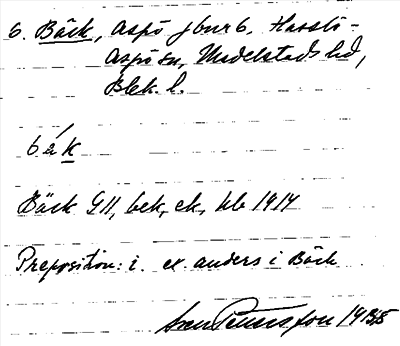 6. Bäck, Aspö jbur 6. Hasslö-
Aspö sn, Medelstads hd,
Blek. l.
bák
Bäck GII, bek, ek, hb 1914
Preposition: i. ex anders i Bäck
Petersson 1935